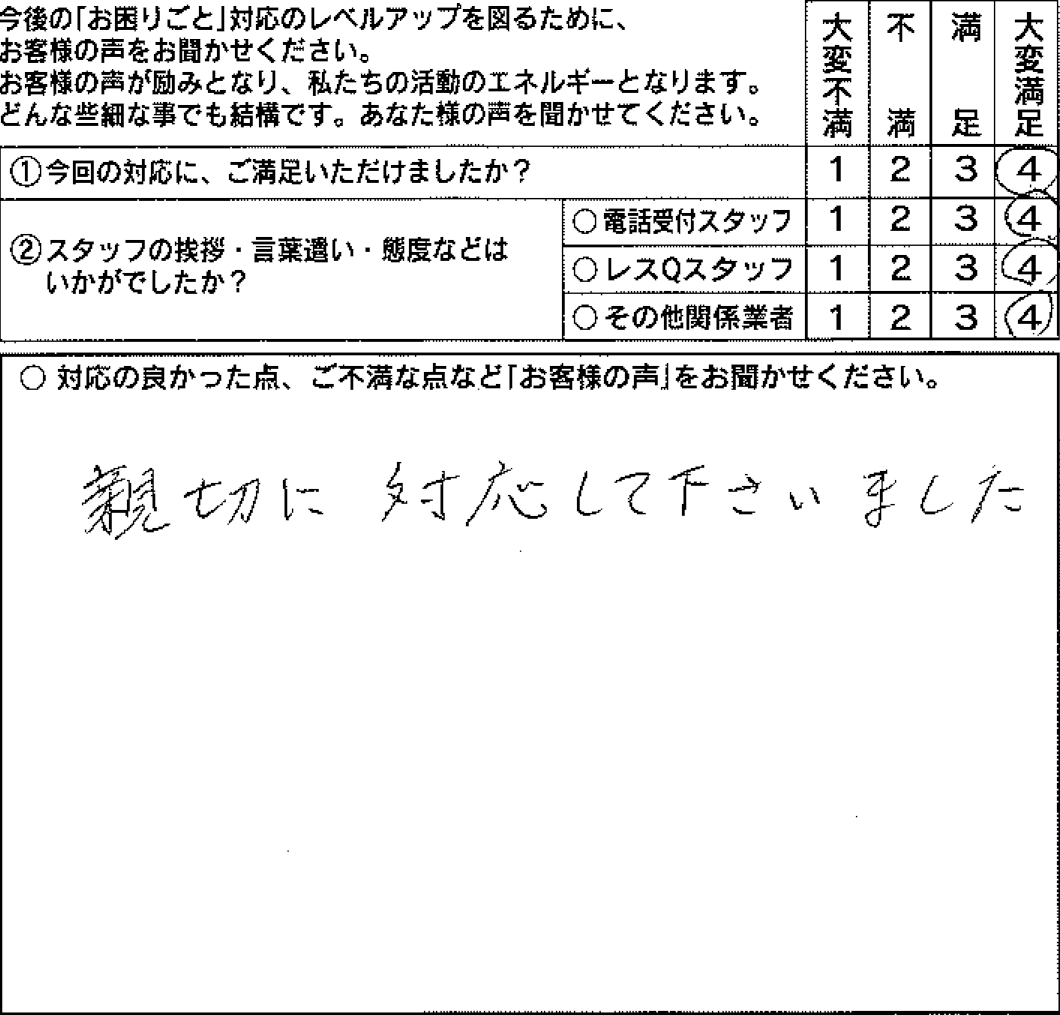 今後の｢お困りごと｣対応のレベルアップを図るために、
お客様の声をお聞かせください。
お客様の声が励みとなり、私たちの活動のエネルギーとなります。
どんな些細な事でも結構です。あなた様の声を聞かせてください。
大変不満 不満 満足 大変満足
①今回の対応に、ご満足いただけましたか？ 1 2 3 4
②スタッフの挨拶・言葉遣い・態度などは
いかがでしたか？
○電話受付スタッフ 1 2 3 4
○レスQスタッフ 1 2 3 4
○その他関係業者 1 2 3 4
○ 対応の良かった点、ご不満な点など｢お客様の声｣をお聞かせください。
親切に 対応して下さいました